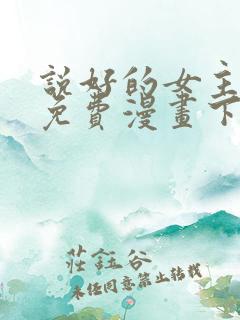 說好的女主
免費漫畫下
莊鈺谷
未经同意禁止转载